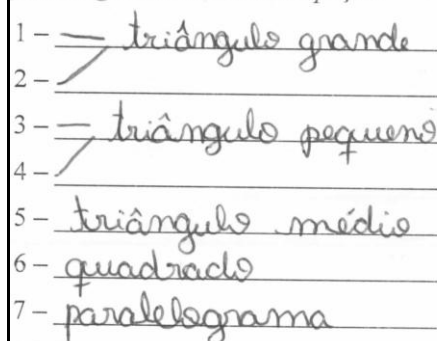 1 – triângulo grande
2 –
3 – triângulo pequeno
4 –
5 – triângulo médio
6 – quadrado
7 – paralelograma